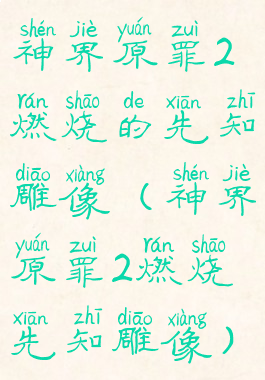 shén jiè yuán zuì
神界原罪2
rán shāo de xiān zhī
燃烧的先知
diāo xiàng shén jiè
雕像（神界
yuán zuì rán shāo
原罪2燃烧
xiān zhī diāo xiàng
先知雕像）